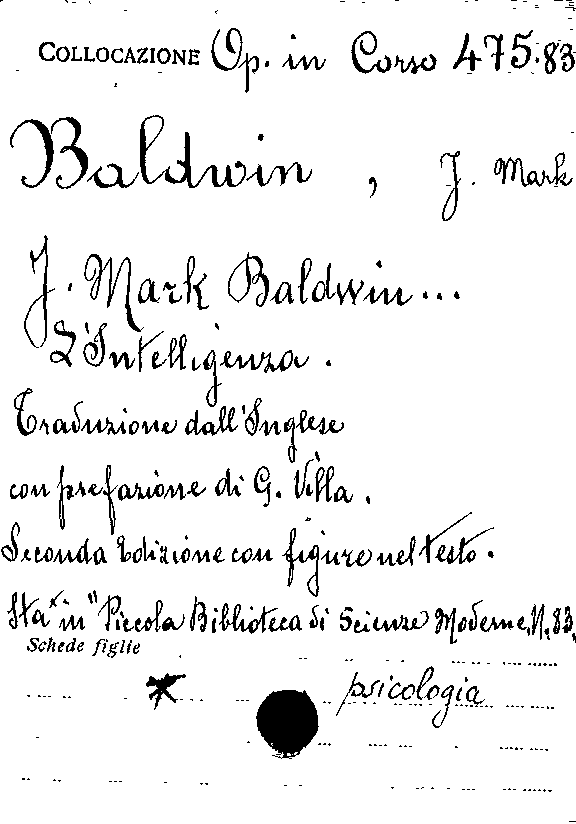 COLLOCAZIONE Op. in Corso 475.83
Baldwin, J. Mark
J. Mark Baldwin...
L'Intelligenza.
Traduzione dall'Inglese
con prefazione di G. Villa.
Seconda Edizione con figure nel testo.
Sta in "Piccola Biblioteca di Scienze Moderne, N. 83.
Schede figlie
psicologia